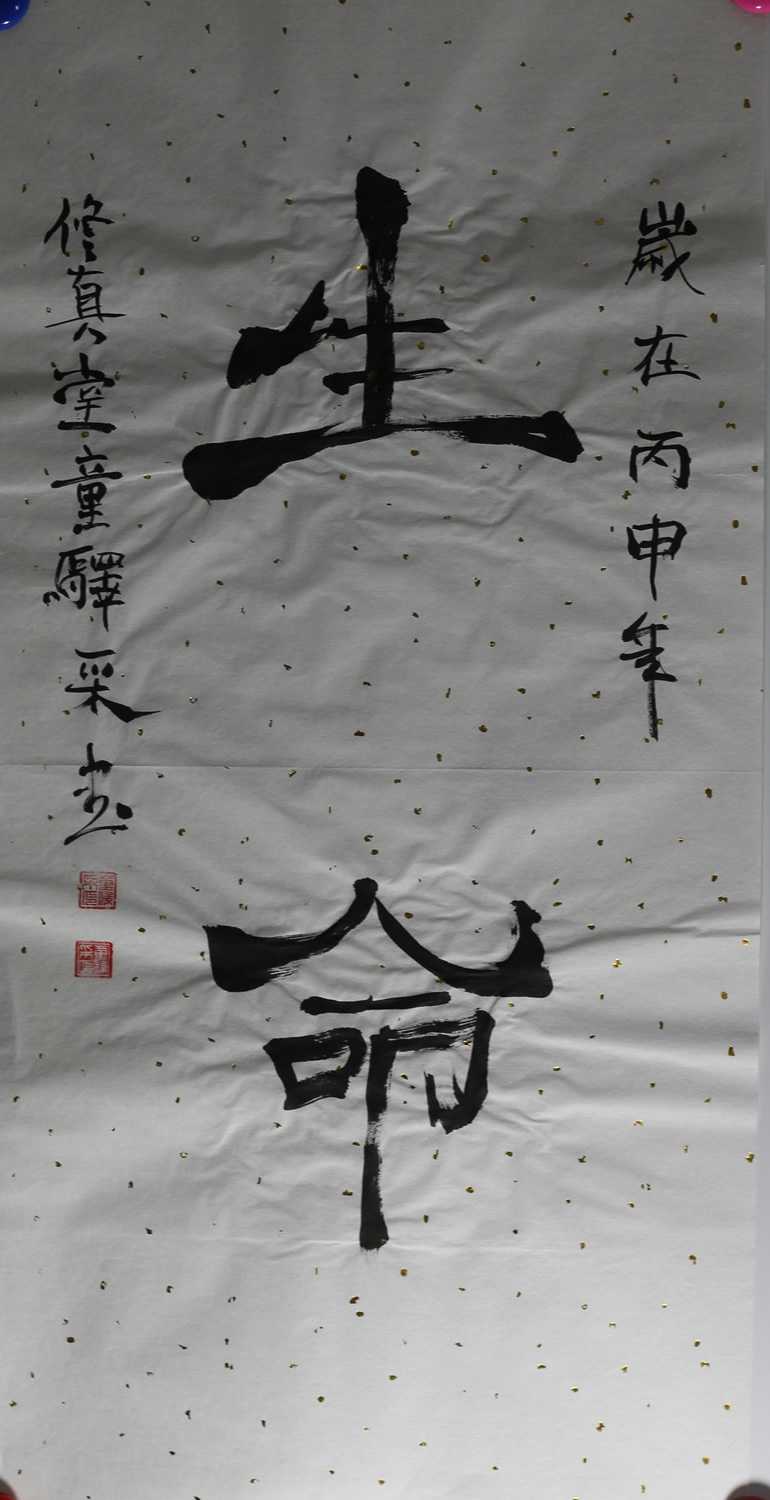 歲在丙申年
生命
修真堂童驛采書